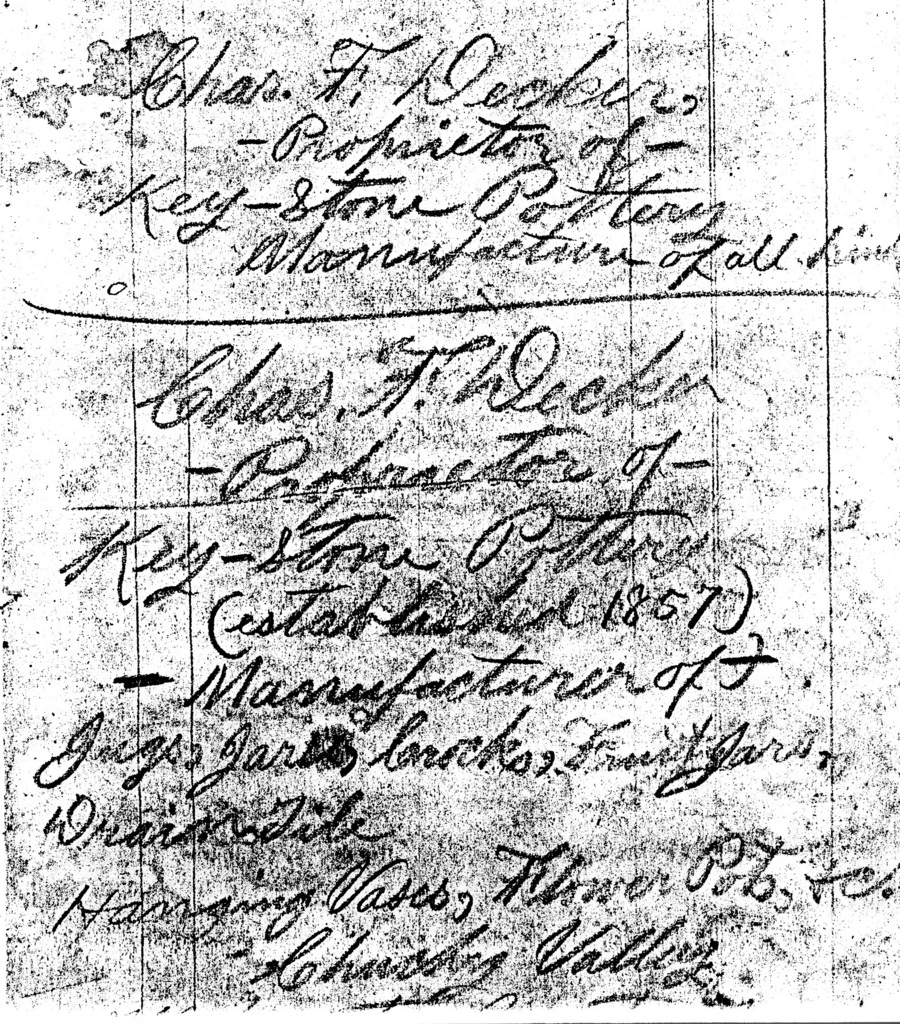 Chas. F. Decker,
- Proprietor of -
Key-Stone Pottery
Manufacture of all kind
Chas. F. Decker
- Proprietor of -
Key-Stone Pottery
(established 1857)
- Manufacturer of -
Jugs, Jars, Crocks, Fruit Jars,
Drain Tile
Hanging Vases, Flower Pots, &c.
Chucky Valley